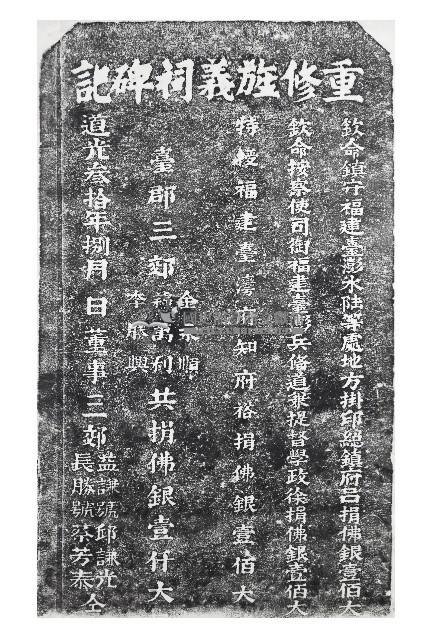 重修旌義祠碑記
欽命鎮守福建臺澎水陸等處地方掛印總鎮府呂捐佛銀壹佰大
欽命按察使司銜福建臺澎兵備道兼提督學政徐捐佛銀壹佰大
特授福建臺灣府知府裕捐佛銀壹佰大
臺郡三郊
金永順
蘇萬利
李勝興
共捐佛銀壹仟大
道光叁拾年捌月 日董事三郊
益謙號邱謙光
長勝號蔡芳泰
仝